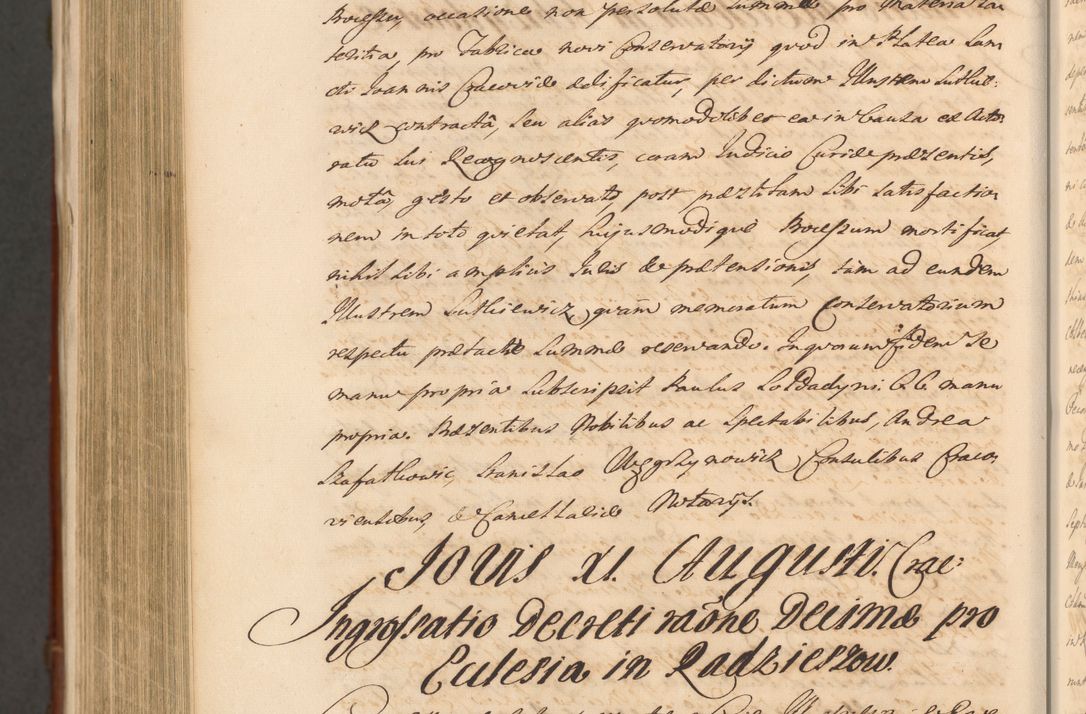 Processu, occasione non persolutæ summæ pro Materia La
teritia, pro Fabrica novi Conservatorij quod in Platea San
cti Joannis Cracoviæ ædificatur, per dictum Illustrem Sutkie-
wicz contractâ, seu alias quomodolibet ea in Causa ex Acto-
ratu sui Recognoscentis, coram Judicio Curiæ præsentis,
motâ, gesto et observato, post præstitam sibi satisfactio-
nem in toto quietat, hujusmodique Processum mortificat,
nihil sibi amplius Juris & prætensionis, tam ad eundem
Illustrem Sutkiewicz, quàm memoratum Conservatorium
respectu prætactæ summæ reservando. In quorum fidem se
manu propria subscripsit Paulus Soldadyni manu
propria. Præsentibus Nobilibus ac Spectabilibus, Andrea
Stanislao Węgrzynowicz Consulibus Craco-
viensibus, & Cancellariæ Notarijs.
Jovis XI. Augusti. Crac:
Ingrossatio Decreti raõne Decimæ pro
Eclesia in Radzieszow.